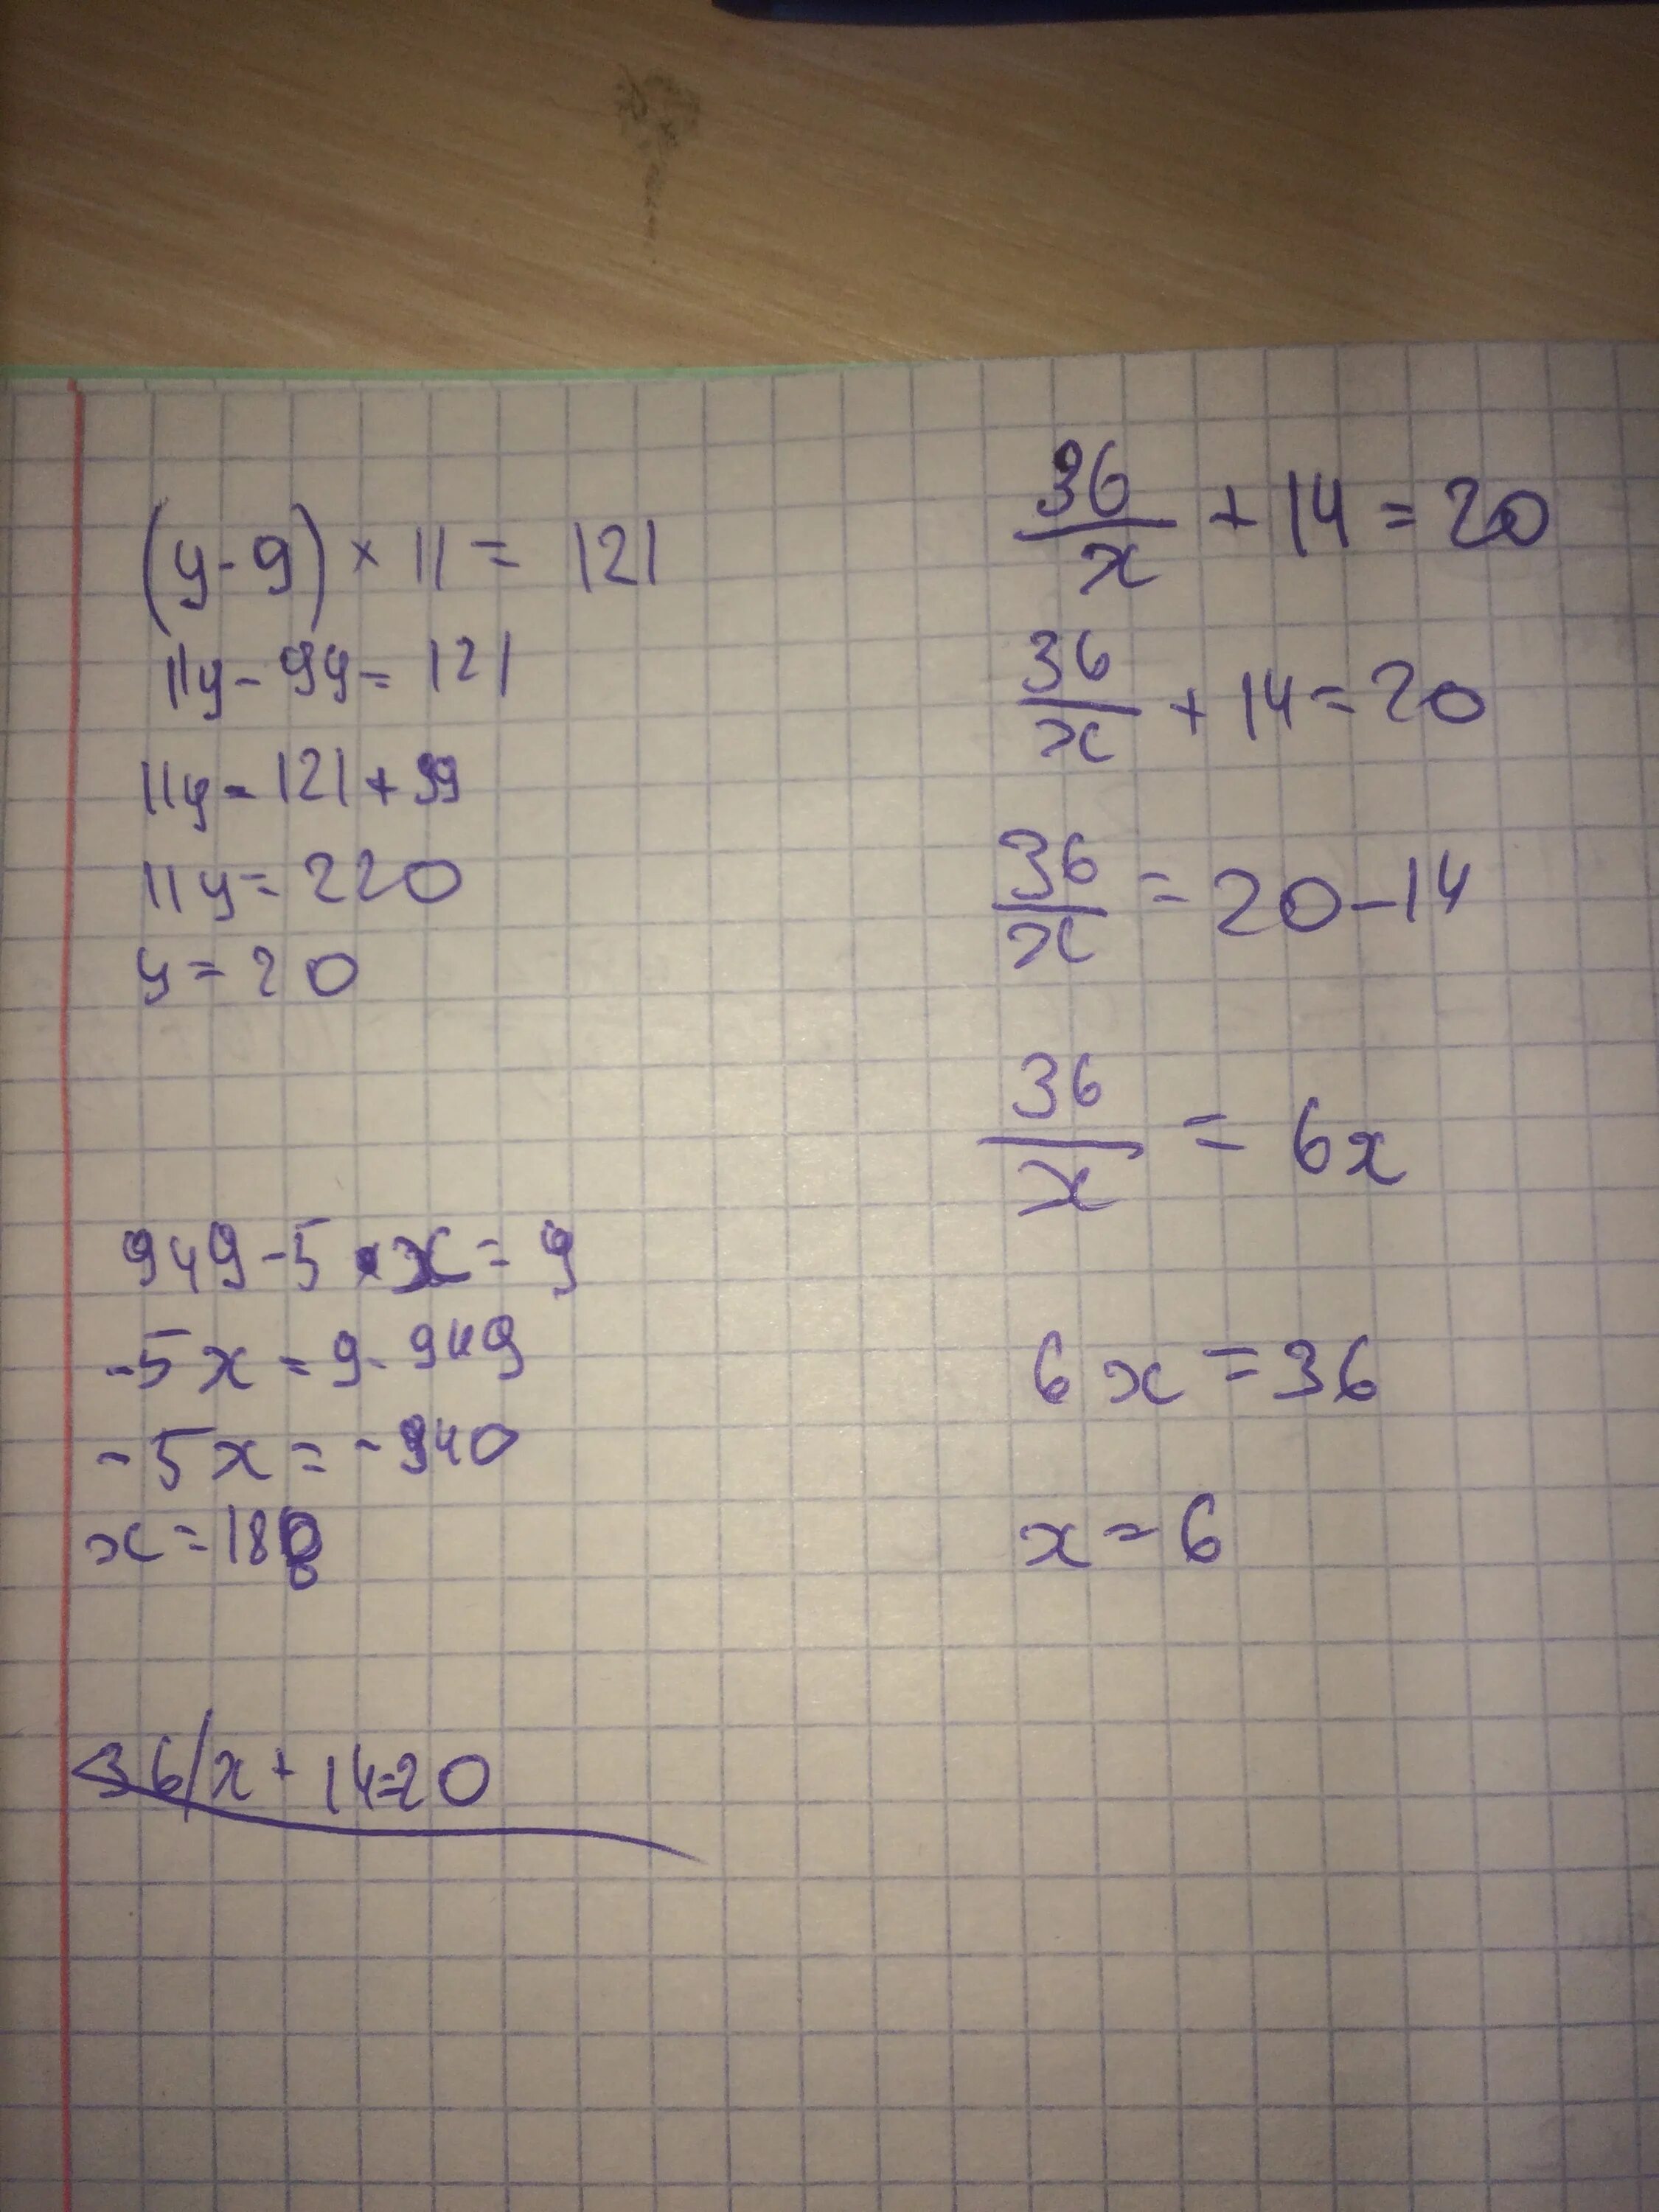 (y-9) × 11 = 121
11y - 99 = 121
11y = 121 + 99
11y = 220
y = 20
949 - 5 · x = 9
-5x = 9 - 949
-5x = -940
x = 188
36/x + 14=20
36/x + 14 = 20
36/x + 14 = 20
36/x = 20 - 14
36/x = 6x
6x = 36
x = 6